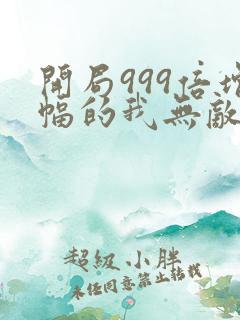 開局999倍增
幅的我無敵
超級小胖
未經同意禁止轉載